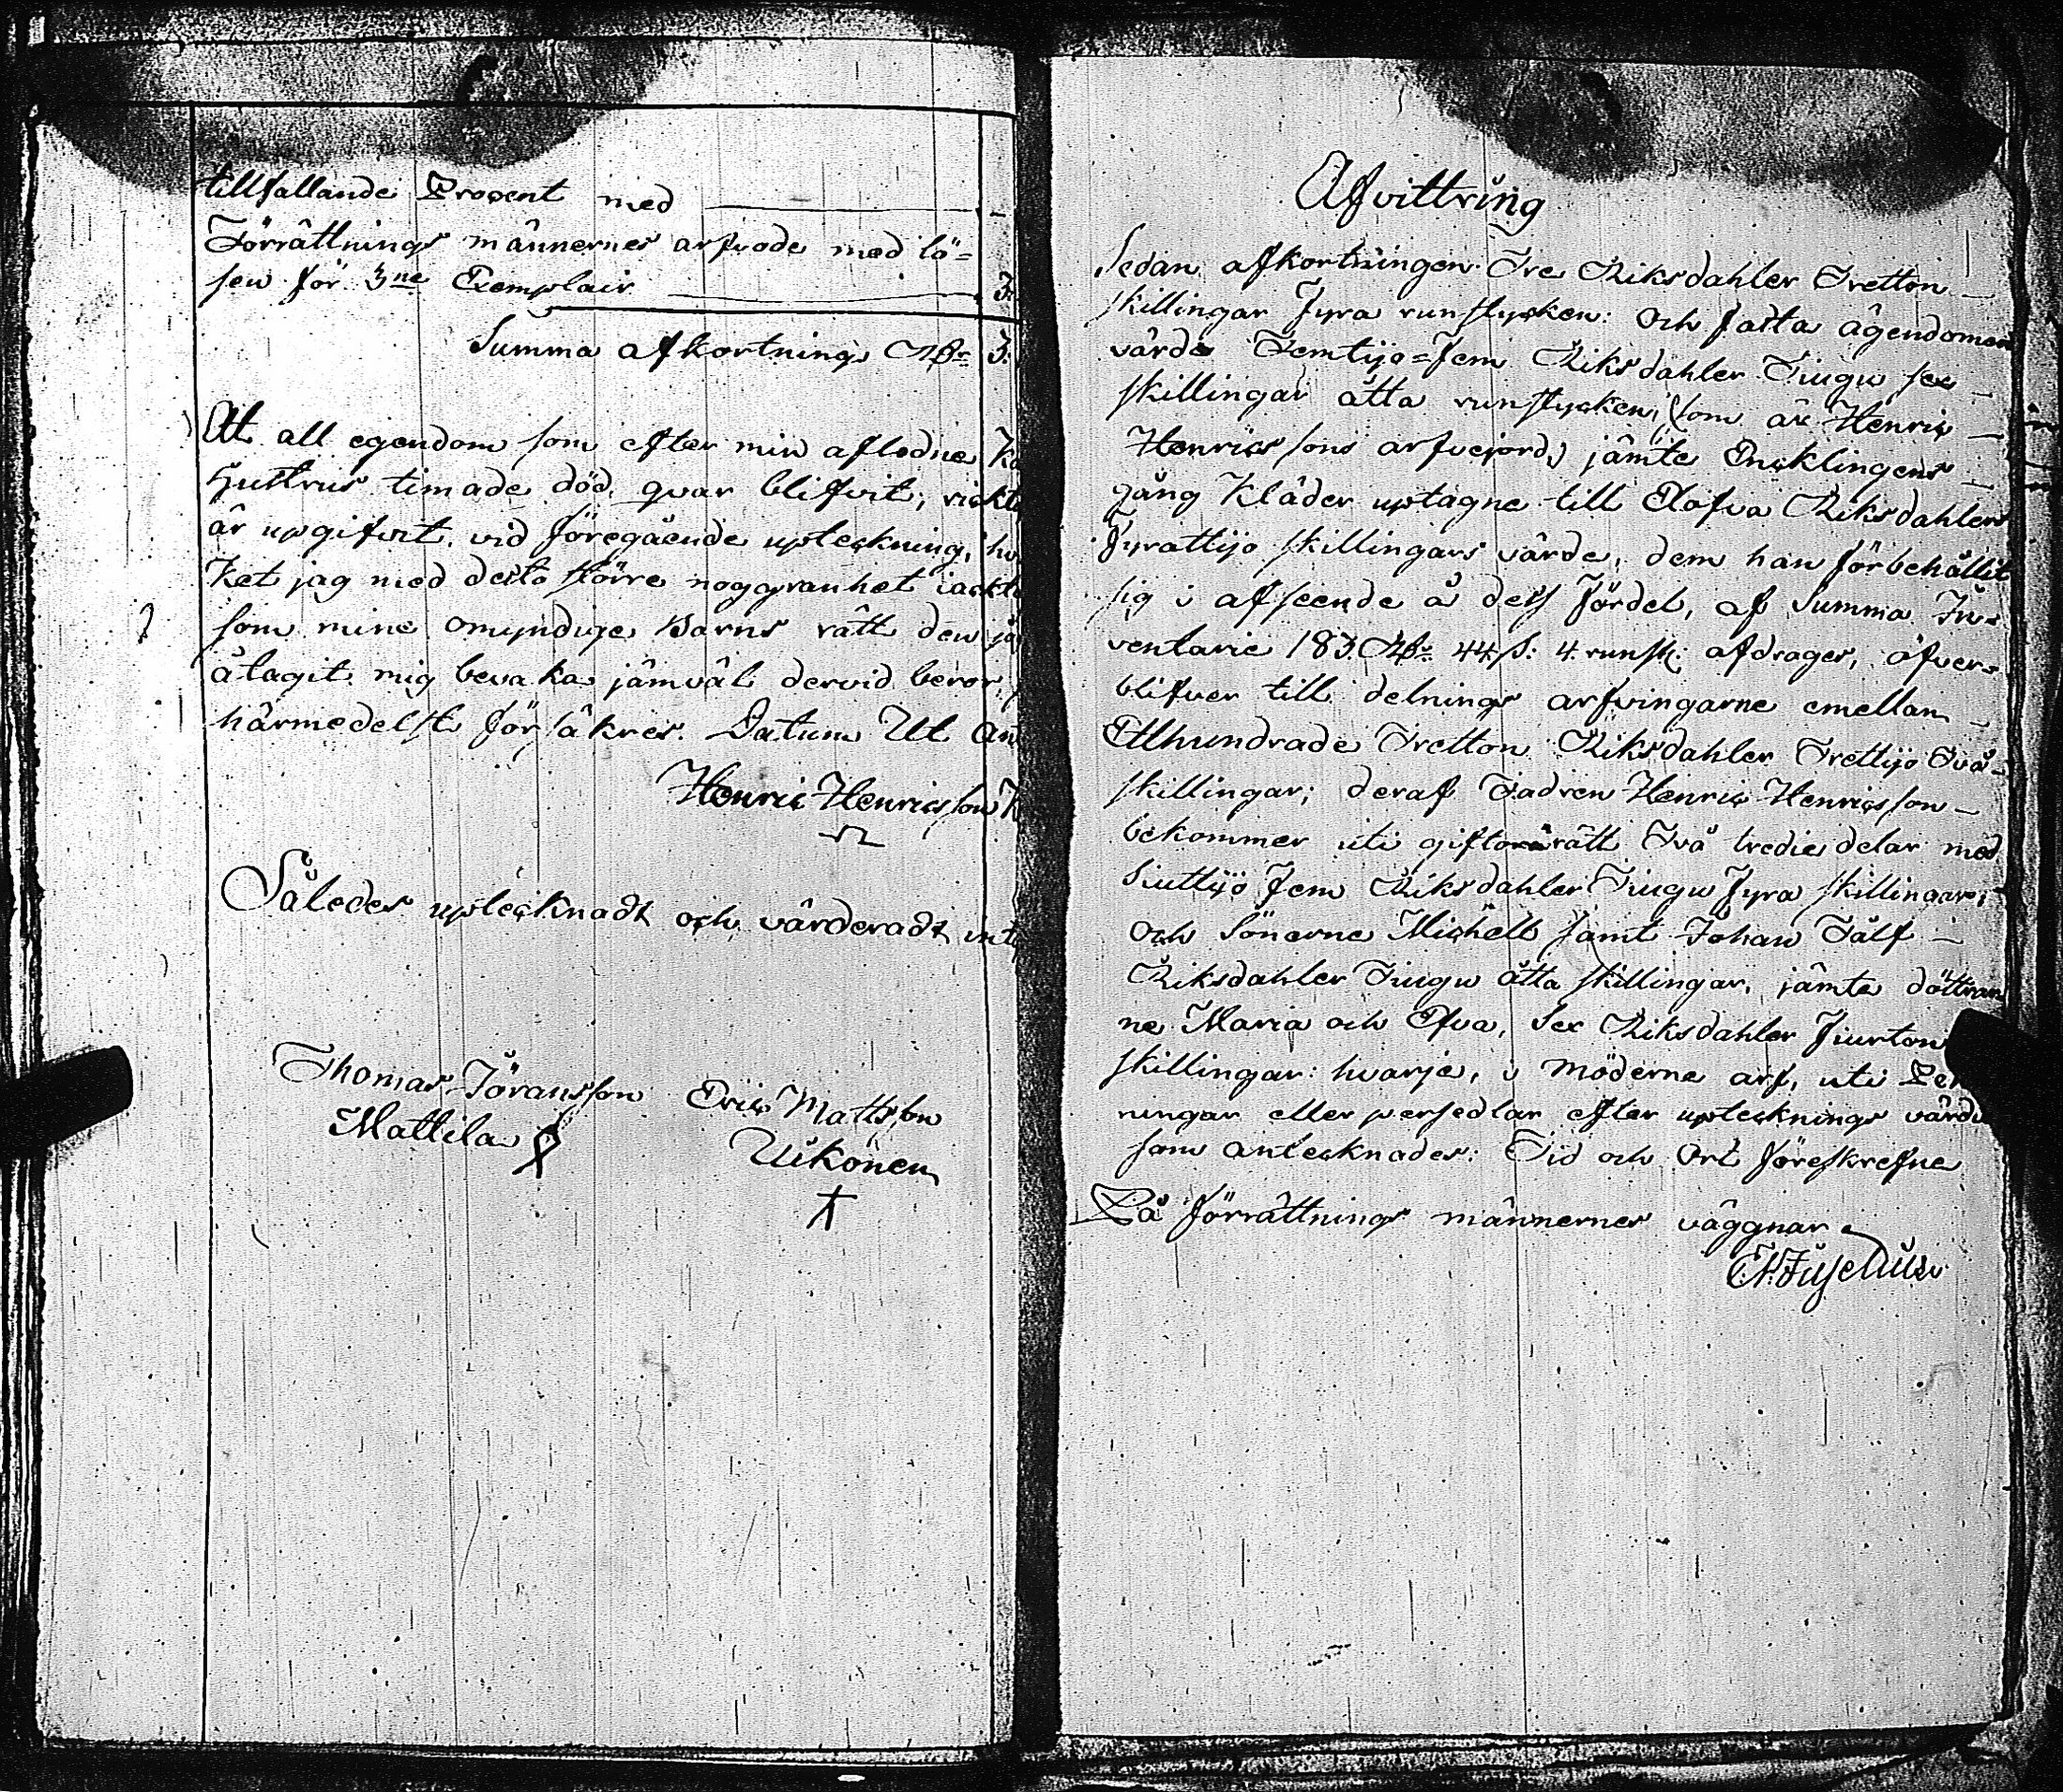 tillfallande Procent med
Förrättnings männernes arfvode med lö=
sen för 3ne Exemplair 3.
Summa afkortnings Rdr 3.
Att all egendom som efter min aflednе
Hustrus timade död, qvar blifvit, rickt
är upgifvit vid föregående upteckning, hv
ket jag med desto större noggranhet iackt
som mine omyndige Barns rätt den
ålagit mig bevaka jämväl dervid beror
härmedelst försäkres. Datum Ut An
Henric Henricsson K
Således uptecknadt och värderadt int
Thomas Jöransson Eric Mattsson
Mattila Uikonen
Afvittring
Sedan afkortningen Tre Riksdahler Tretton
skillingar fyra runstycken: Och fasta ägendomen
värde Femtijo=fem Riksdahler Tiugu sex
skillingar åtta runstycken, (som är Henric
Henricssons arfvejord,) jämte Encklingens
gång Kläder uptagne till Elofva Riksdahlers
Fyrattijo skillingars värde, dem han förbehållit
sig i afseende å dess fördel, af Summa In=
ventarie 183. Rdr 44 s: 4. runst: afdrages, öfver=
blifver till delnings arfvingarne emellan
Etthundrade Tretton Riksdahler Trettijo Två
skillingar; deraf Fadren Henric Henricsson
bekommer uti giftorätt Två tredie delar med
Siuttijo fem Riksdahler Tiugu fyra skillingar;
och Sönerne Michell samt Johan Tålf
Riksdahler Tiugu åtta skillingar, jämte döttran
ne Maria och Efva, Sex Riksdahler fiurton
skillingar: hvarje, i Möderne arf, uti Pen
ningar eller persedlar efter uptecknings värde
som antecknades: Tid och Ort föreskrefne
På förrättnings männernes väggnar